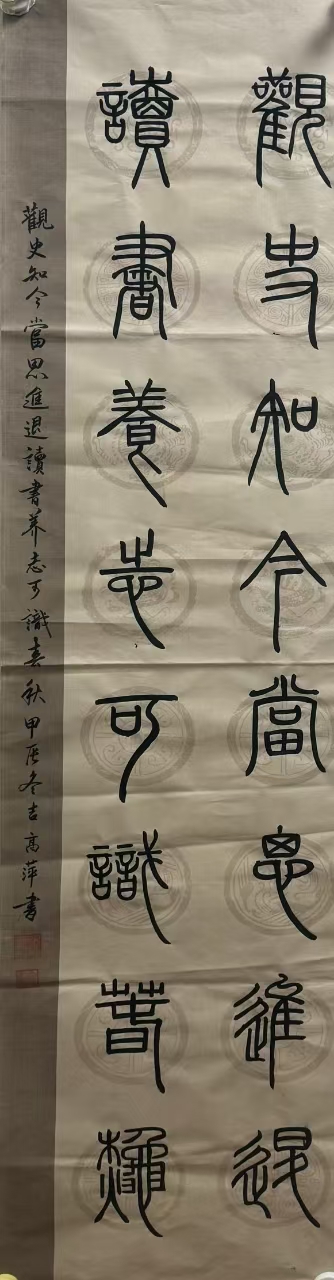 觀史知今當思進退
讀書養志可識春秋
觀史知今當思進退讀書养志可識春秋甲辰冬吉高萍書